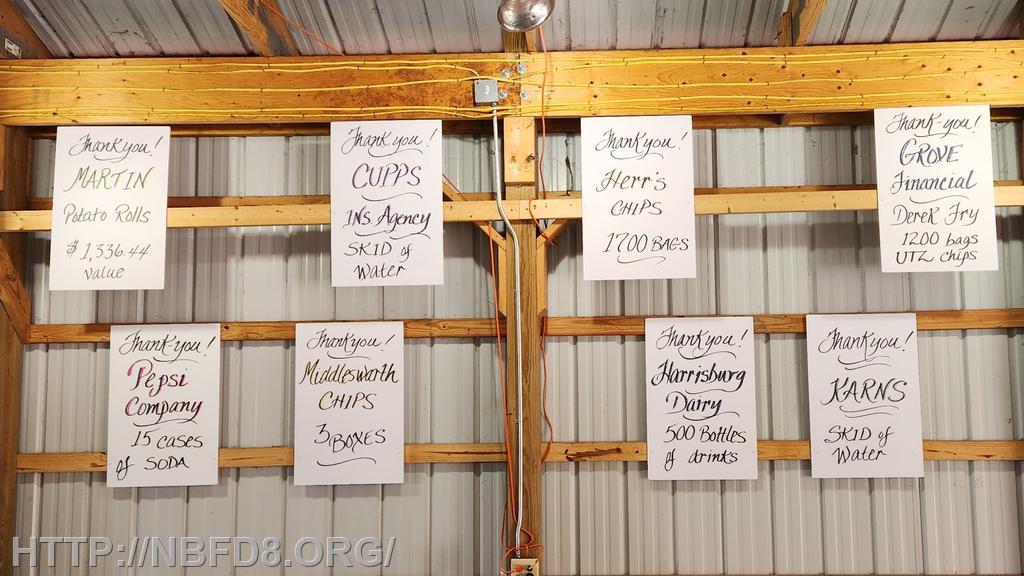 Thank you!
MARTIN
Potato Rolls
$1,336.44
value
Thank you!
CUPPS
INS. Agency
SKID of
Water
Thank you!
Herr's
CHIPS
1700 BAGS
Thank you!
GROVE
Financial
Derek Fry
1200 bags
UTZ chips
Thank you!
Pepsi
Company
15 cases
of SODA
Thank you!
Middlesworth
CHIPS
3 BOXES
Thank you!
Harrisburg
Dairy
500 Bottles
of drinks
Thank you!
KARNS
SKID of
Water
HTTP://NBFD8.ORG/